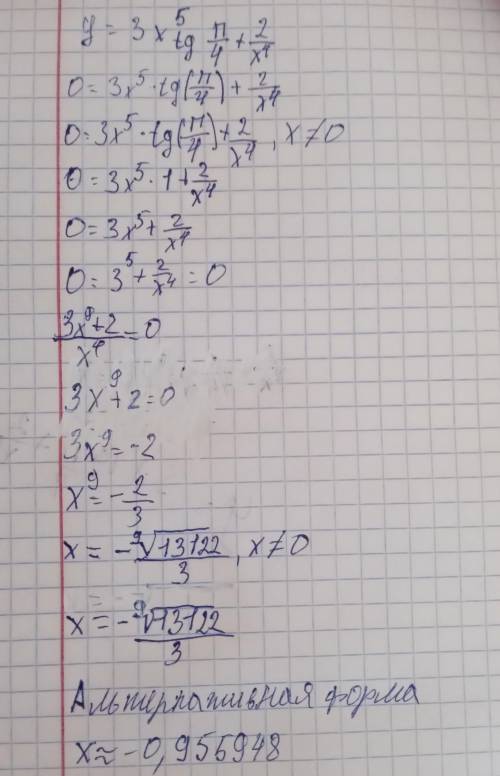 y = 3x⁵ tg π/4 + 2/x⁴
0 = 3x⁵ · tg(π/4) + 2/x⁴
0 = 3x⁵ · tg(π/4) + 2/x⁴, x ≠ 0
0 = 3x⁵ · 1 + 2/x⁴
0 = 3x⁵ + 2/x⁴
0 = 3⁵ + 2/x⁴ = 0
(3x⁹ + 2)/x⁴ = 0
3x⁹ + 2 = 0
3x⁹ = -2
x⁹ = -2/3
x = -⁹√13122/3, x ≠ 0
x = -⁹√13122/3
Альтернативная форма
x ≈ -0,955948